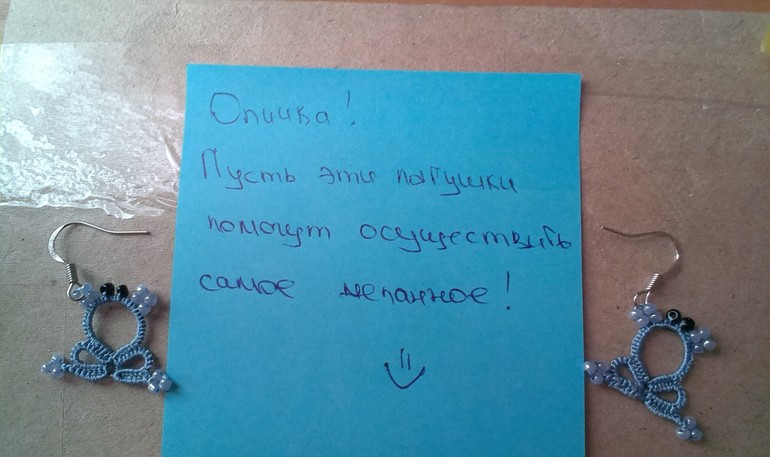 Оличка!
Пусть эти лягушки
помогут осуществить
самое желанное!